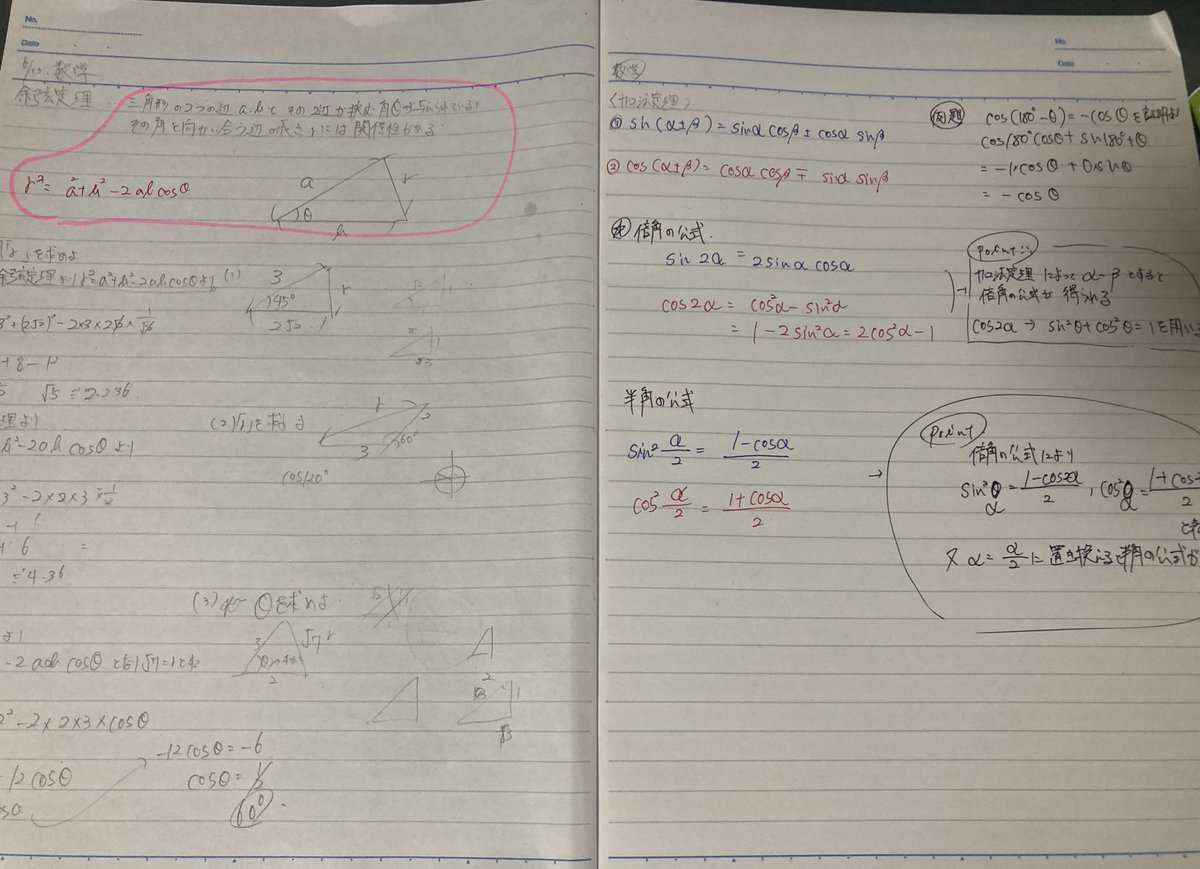 No.
Date
6/13. 数学
余弦定理
三角形の2つの辺 a.bとその2辺が挟む角θが与えられている
その角と向かい合う辺の長さrには関係性がある
r²= a²+b²-2ab cosθ
a
r
θ
b
「r」を求めよ
余弦定理 r²=a²+b²-2ab cosθより
(1)
3
r
45°
2√2
3²+(2√2)²-2×3×2√2×
+8-12
√5≒2.236
(2)「r」を求めよ
r
2
3
60°
理より
b²-2ab cosθより
cos120°
3²-2×2×3×
+6
=
≒4.36
(3) θを求めよ
3
√7 r
2
より
-2ab cosθ
2²-2×2×3×cosθ
-12cosθ=-6
12cosθ
cosθ=1/2
60°
2
1
√3
No.
Date
数学
〈加法定理〉
① sin(α±β)=sinα cosβ ± cosα sinβ
② cos(α±β)= cosα cosβ ∓ sinα sinβ
例題
cos(180°-θ)=-cosθを証明せよ
cos180°cosθ+sin180°+θ
=-1×cosθ+0×sinθ
=-cosθ
倍角の公式.
sin2α=2sinα cosα
cos2α= cos²α-sin²α
=1-2sin²α=2cos²α-1
point
加法定理によってα=βとすると
倍角の公式が得られる
cos2α→sin²θ+cos²θ=1を用いる
半角の公式
sin² α/2 = 1-cosα/2
cos² α/2 = 1+cosα/2
→
point
倍角の公式により
sin²θ=1-cos2α/2, cos²θ=1+cos2/2
α
α
又α=α/2に置き換えると半角の公式が